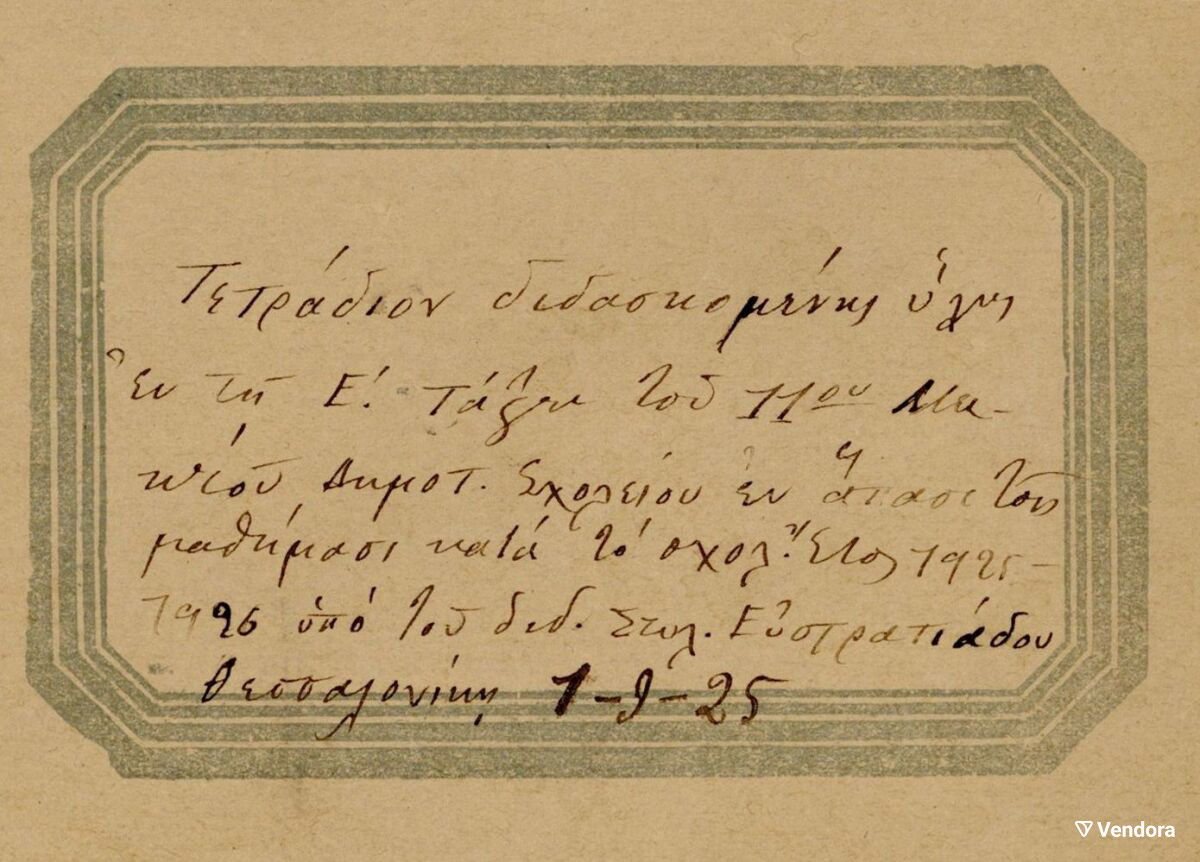 Τετράδιον διδασκομένης ὕλης
ἐν τῇ Ε΄. τάξει τοῦ 11ου Μει-
κτοῦ Δημοτ. Σχολείου ἐν ἅπασι τοῖς
μαθήμασι κατά τό σχολ. Ἔτος 1925-
1926 ὑπό τοῦ διδ. Στυλ. Εὐστρατιάδου
Θεσσαλονίκη 1-9-25
Vendora